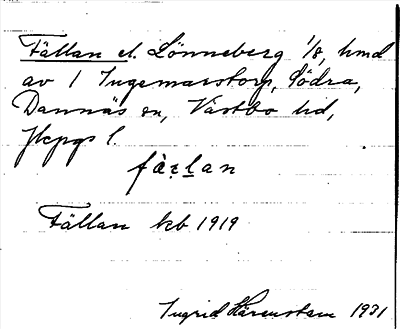 Fällan el. Lönneberg 1/8, hmd
av 1 Ingemarstorp, Södra,
Dannäs sn, Västbo hd,
Jkpgs l.
fà̤ḻan
Fällan kb 1919
Ingrid Härenstam 1931